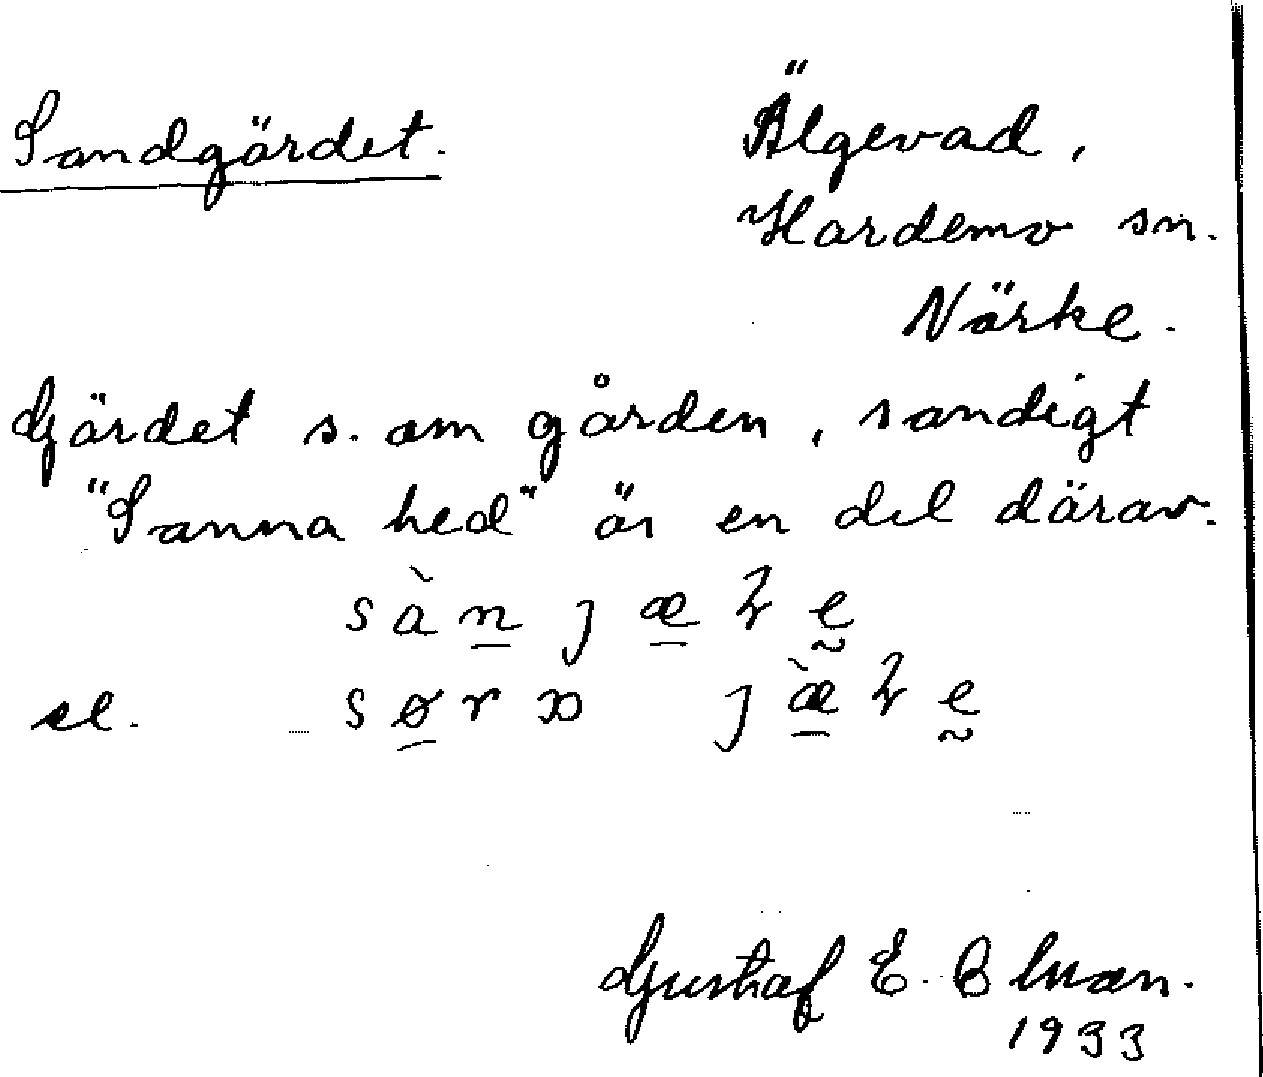 Sandgärdet.
Älgevad,
Hardemo sn.
Närke.
Gärdet s. om gården, sandigt
"Sanna hed" är en del därav.
el.
Gustaf E. Blman.
1933